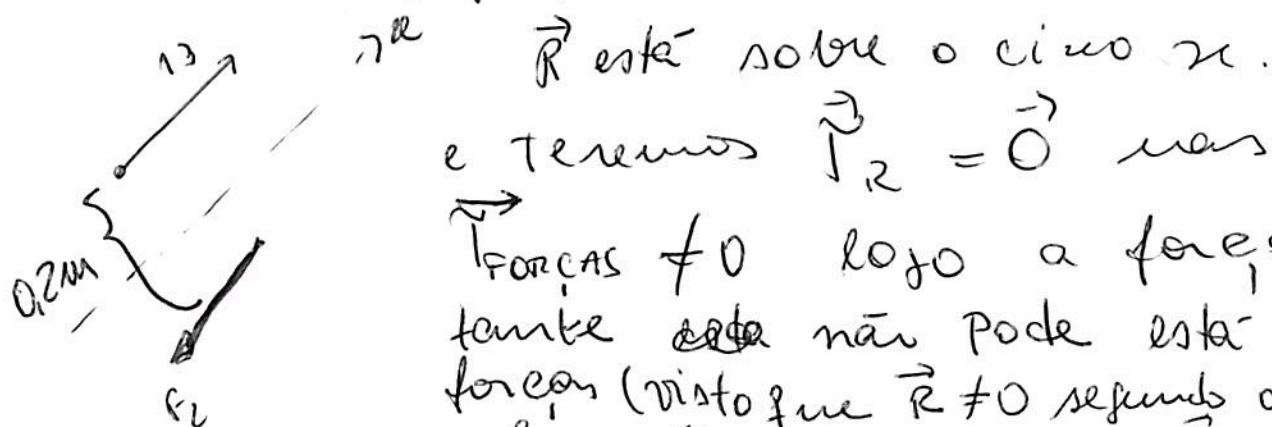 R⃗ está sobre o eixo x.
e teremos τ⃗_R = 0⃗ mas
τ⃗_FORÇAS ≠ 0 logo a força
tante não pode está
forças (visto que R⃗ ≠ 0 segundo o
0,2m
F2